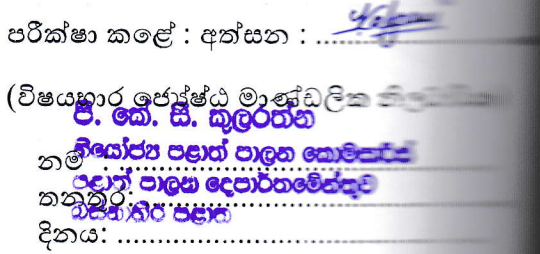 පරීක්ෂා කළේ : අත්සන : ....................
(විෂයභාර ජ්‍යේෂ්ඨ මාණ්ඩලික
පී. කේ. සී. කුලරත්න
නියෝජ්‍ය පළාත් පාලන කොමසාරිස්
නම :
පළාත් පාලන දෙපාර්තමේන්තුව
තනතුර:
බස්නාහිර පළාත
දිනය: ....................